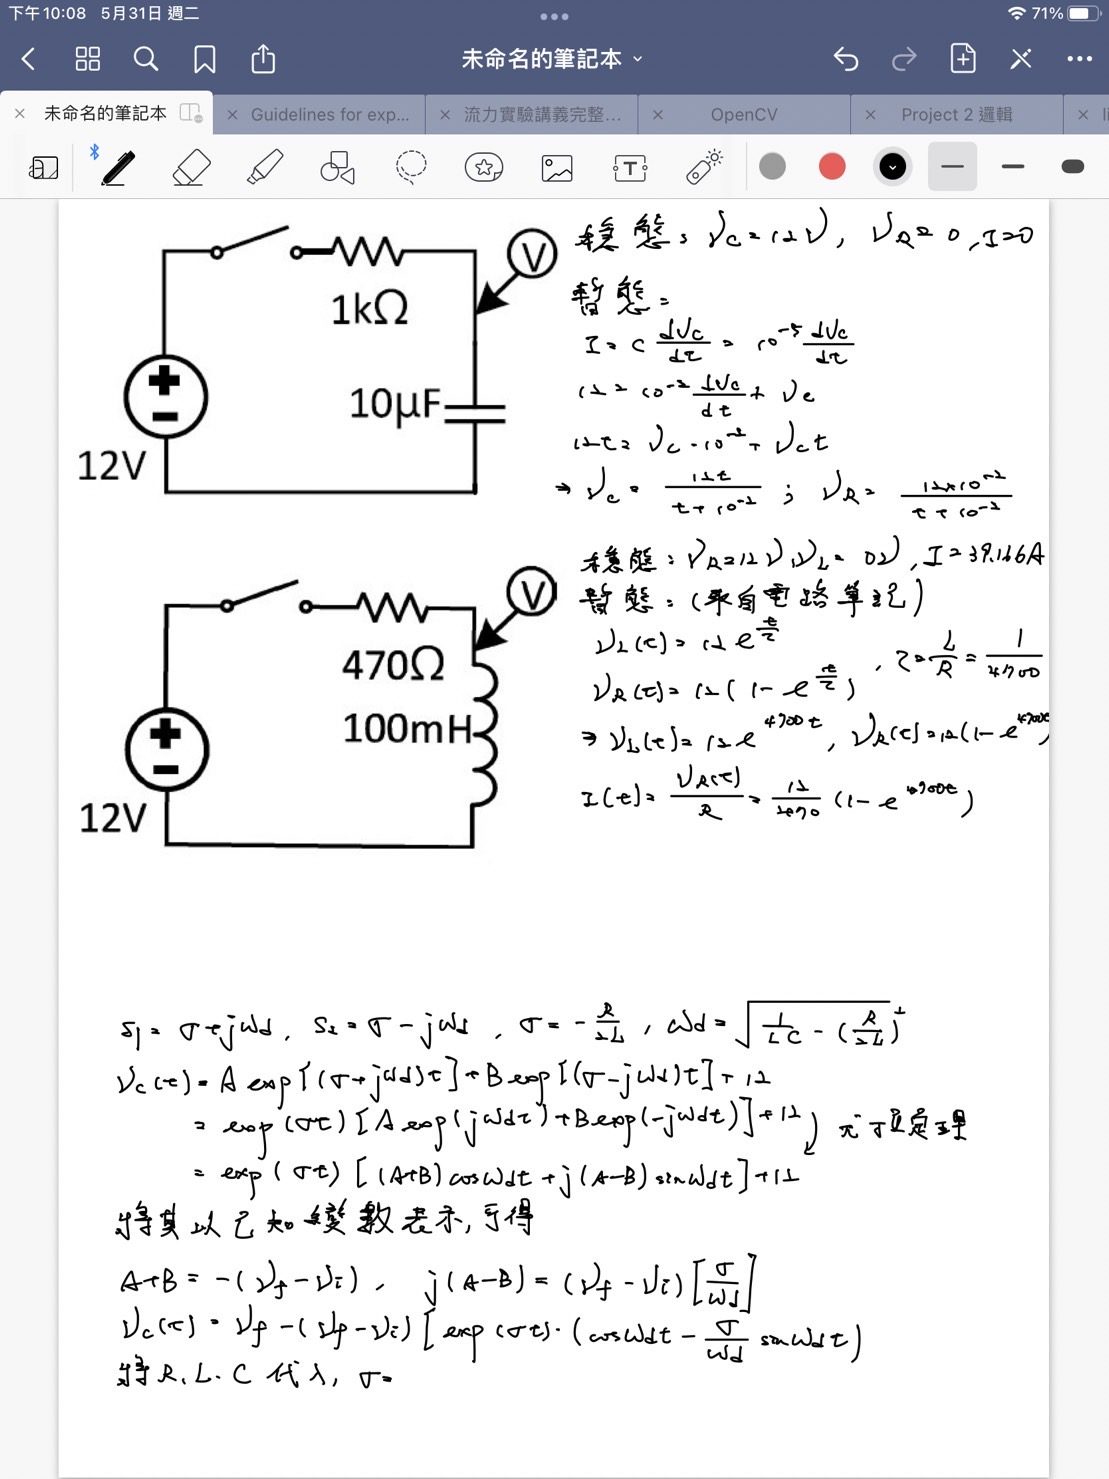 下午10:08 5月31日 週二
71%
未命名的筆記本
未命名的筆記本
Guidelines for exp...
流力實驗講義完整...
OpenCV
Project 2 邏輯
1kΩ
10μF
12V
V
穩態: Vc=12V, VR=0, I=0
暫態:
I = C dVc/dt = 10⁻⁵ dVc/dt
12 = 10⁻² dVc/dt + Vc
12t = Vc·10⁻² + Vct
⇒ Vc = 12t/(t+10⁻²) ; VR = 12×10⁻²/(t+10⁻²)
470Ω
100mH
12V
V
穩態: VR=12V, VL=0V, I=39.166A
暫態: (來自電路筆記)
VL(t) = 12e^(t/τ)
VR(t) = 12(1-e^(t/τ)) , τ = L/R = 1/4700
⇒ VL(t) = 12e^(4700t), VR(t) = 12(1-e^(4700t))
I(t) = VR(t)/R = 12/470 (1-e^(4700t))
S1 = σ+jωd, S2 = σ-jωd, σ = -R/2L, ωd = √(1/LC - (R/2L)²)
Vc(t) = A exp[(σ+jωd)t] + B exp[(σ-jωd)t] + 12
= exp(σt)[A exp(jωdt) + B exp(-jωdt)] + 12
= exp(σt)[(A+B)cosωdt + j(A-B)sinωdt] + 12
將其以已知變數表示, 可得
A+B = -(Vf-Vi), j(A-B) = (Vf-Vi)[σ/ωd]
Vc(t) = Vf-(Vf-Vi)[exp(σt)·(cosωdt - σ/ωd sinωdt)
將R.L.C代入, σ=